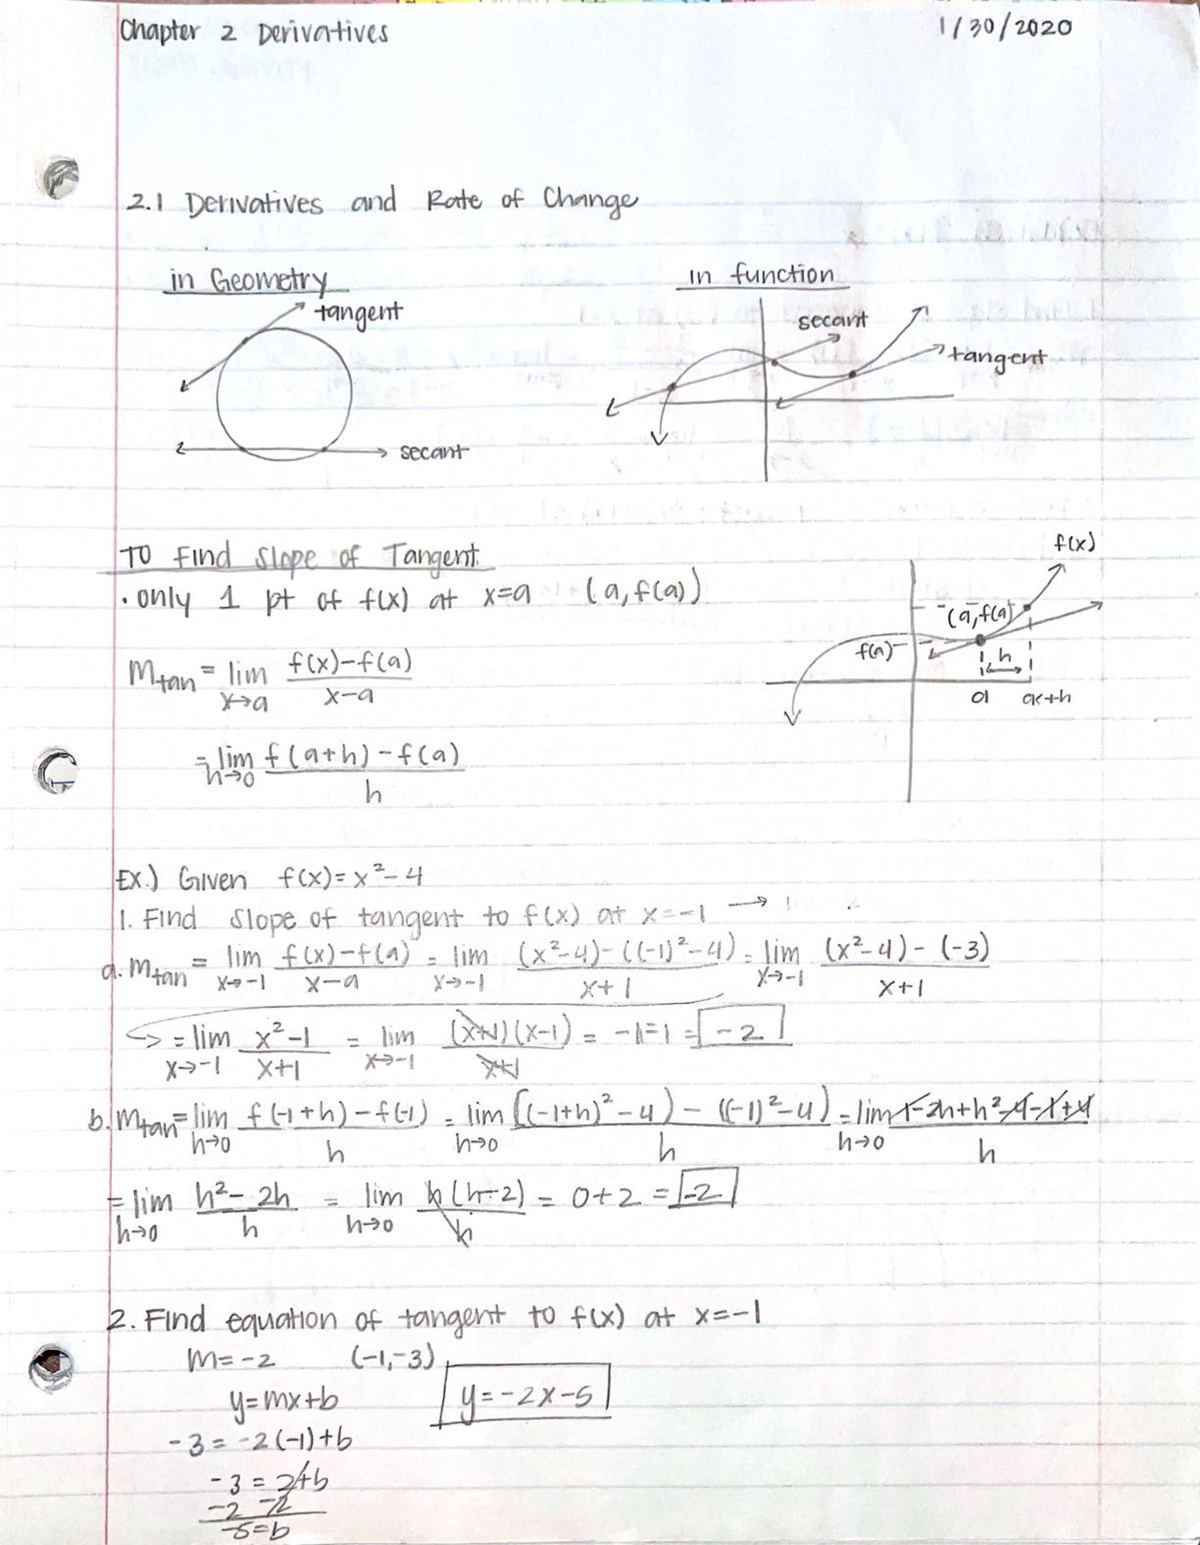 Chapter 2 Derivatives 1/30/2020
2.1 Derivatives and Rate of Change
in Geometry
tangent
secant
in function
secant
tangent
To Find Slope of Tangent.
• only 1 pt of f(x) at x=a (a, f(a))
f(x)
(a, f(a))
f(a)
h
a a+h
Mtan = lim x→a f(x)-f(a) / x-a
= lim h→0 f(a+h)-f(a) / h
Ex.) Given f(x)=x²-4
1. Find slope of tangent to f(x) at x=-1 →
a. Mtan = lim x→-1 f(x)-f(a) / x-a = lim x→-1 (x²-4)-((-1)²-4) / x+1 = lim x→-1 (x²-4)-(-3) / x+1
↪ = lim x→-1 x²-1 / x+1 = lim x→-1 (x+1)(x-1) / x+1 = -1-1 = -2
b. Mtan = lim h→0 f(-1+h)-f(-1) / h = lim h→0 [(-1+h)²-4)-((-1)²-4) / h = lim h→0 1-2h+h²-4-1+4 / h
= lim h→0 h²-2h / h = lim h→0 h(h-2) / h = 0+2 = -2
2. Find equation of tangent to f(x) at x=-1
M=-2 (-1,-3)
y=mx+b y=-2x-5
-3=-2(-1)+b
-3=2+b
-2 -2
-5=b